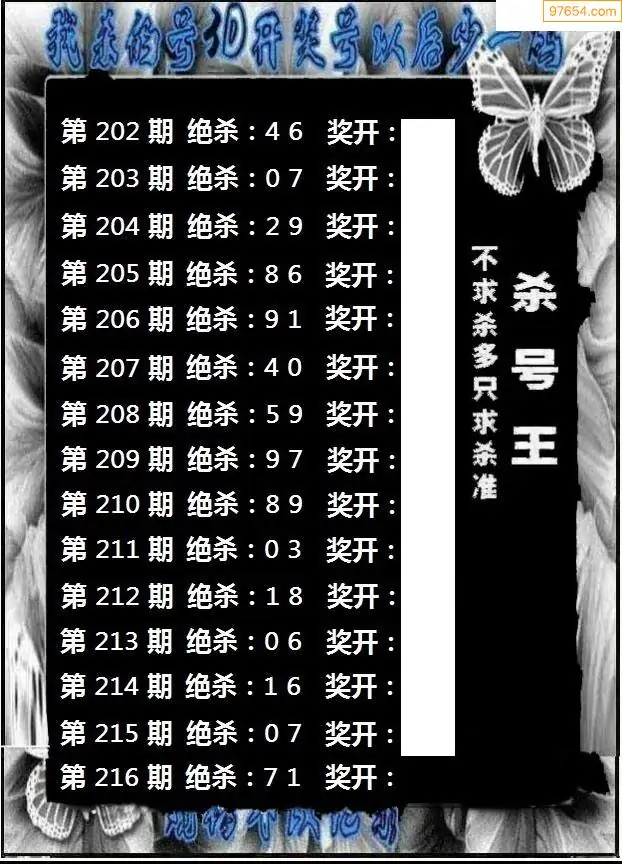 97654.com
我杀的号3D开奖号以后少一码
第 202 期 绝杀：4 6 奖开：
第 203 期 绝杀：0 7 奖开：
第 204 期 绝杀：2 9 奖开：
第 205 期 绝杀：8 6 奖开：
第 206 期 绝杀：9 1 奖开：
第 207 期 绝杀：4 0 奖开：
第 208 期 绝杀：5 9 奖开：
第 209 期 绝杀：9 7 奖开：
第 210 期 绝杀：8 9 奖开：
第 211 期 绝杀：0 3 奖开：
第 212 期 绝杀：1 8 奖开：
第 213 期 绝杀：0 6 奖开：
第 214 期 绝杀：1 6 奖开：
第 215 期 绝杀：0 7 奖开：
第 216 期 绝杀：7 1 奖开：
杀号王
不求杀多只求杀准